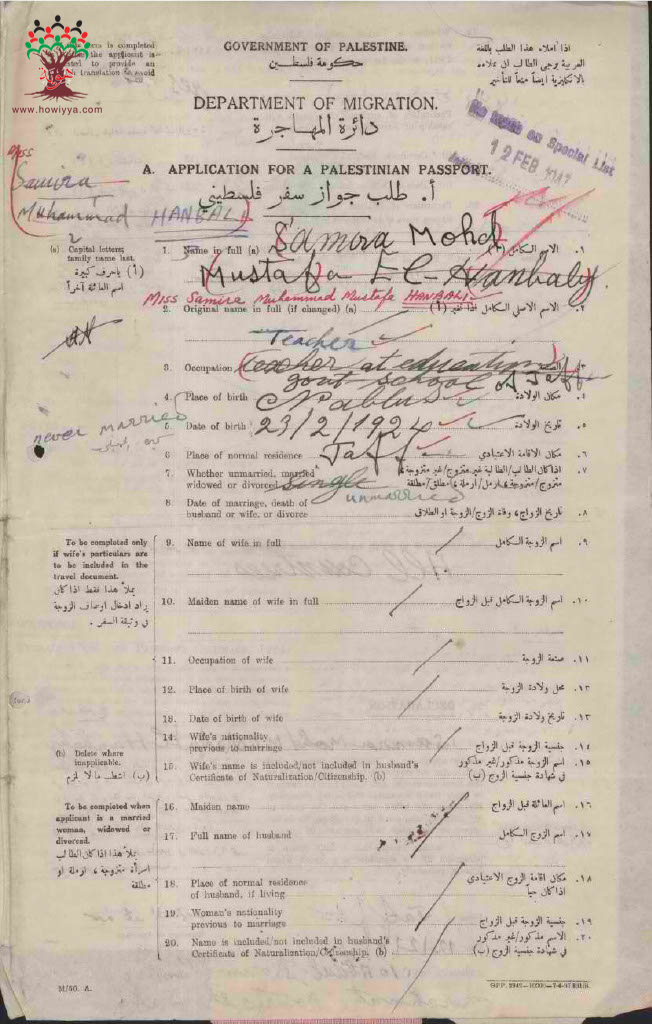 GOVERNMENT OF PALESTINE.
حكومة فلسطين
DEPARTMENT OF MIGRATION.
دائرة المهاجرة
is completed
the applicant is
to provide an
translation to avoid
اذا املاء هذا الطلب باللغة
العربية يرجى الطالب ان يملاءه
بالانكليزية ايضاً منعاً للتأخير
www.howiyya.com
on Special List
12 FEB 1947
A. APPLICATION FOR A PALESTINIAN PASSPORT.
أ. طلب جواز سفر فلسطيني
Miss
Samira
Muhammad HANBALI
(a) Capital letters; family name last.
(أ) باحرف كبيرة
اسم العائلة آخراً
1. Name in full (a) Samira Mohd الاسم الكامل (أ) ١.
Mustafa El-Hanbaly
Miss Samira Muhammad Mustafa HANBALI
2. Original name in full (if changed) (a) الاسم الاصل الكامل اذا تغير (أ) ٢.
Teacher
3. Occupation teacher at education
govt school of Jaffa
4. Place of birth Nablus مكان الولادة ٤.
5. Date of birth 23/2/1924 تاريخ الولادة ٥.
never married
6 Place of normal residence Jaffa مكان الاقامة الاعتيادي ٦.
7. Whether unmarried, married اذا كان الطالب/الطالبة غير متزوج/غير متزوجة ٧.
widowed or divorced single متزوج/متزوجة، ارمل/ارملة، مطلق/مطلقة
unmarried
8 Date of marriage, death of
husband or wife, or divorce تاريخ الزواج، وفاة الزوج/الزوجة او الطلاق ٨.
To be completed only if wife's particulars are to be included in the travel document.
يملأ هذا فقط اذا كان
يراد ادخال اوصاف الزوجة
في وثيقة السفر.
9. Name of wife in full اسم الزوجة الكامل ٩.
10. Maiden name of wife in full اسم الزوجة الكامل قبل الزواج ١٠.
11. Occupation of wife صنعة الزوجة ١١.
12. Place of birth of wife محل ولادة الزوجة ١٢.
13. Date of birth of wife تاريخ ولادة الزوجة ١٣.
14. Wife's nationality
previous to marriage جنسية الزوجة قبل الزواج ١٤.
(b) Delete where inapplicable.
(ب) اشطب ما لا يلزم
15. Wife's name is included/not included in husband's اسم الزوجة مذكور/غير مذكور ١٥.
Certificate of Naturalization/Citizenship. (b) في شهادة جنسية الزوج (ب)
To be completed when applicant is a married woman, widowed or divorced.
يملأ هذا اذا كان الطالب
امرأة متزوجة، ارملة او
مطلقة
16. Maiden name اسم العائلة قبل الزواج ١٦.
17. Full name of husband اسم الزوج الكامل ١٧.
18. Place of normal residence مكان اقامة الزوج الاعتيادي ١٨.
of husband, if living اذا كان حياً
19. Woman's nationality
previous to marriage جنسية الزوجة قبل الزواج ١٩.
20. Name is included/not included in husband's الاسم مذكور/غير مذكور ٢٠.
Certificate of Naturalization/Citizenship. (b) في شهادة جنسية الزوج (ب)
M/50. A.